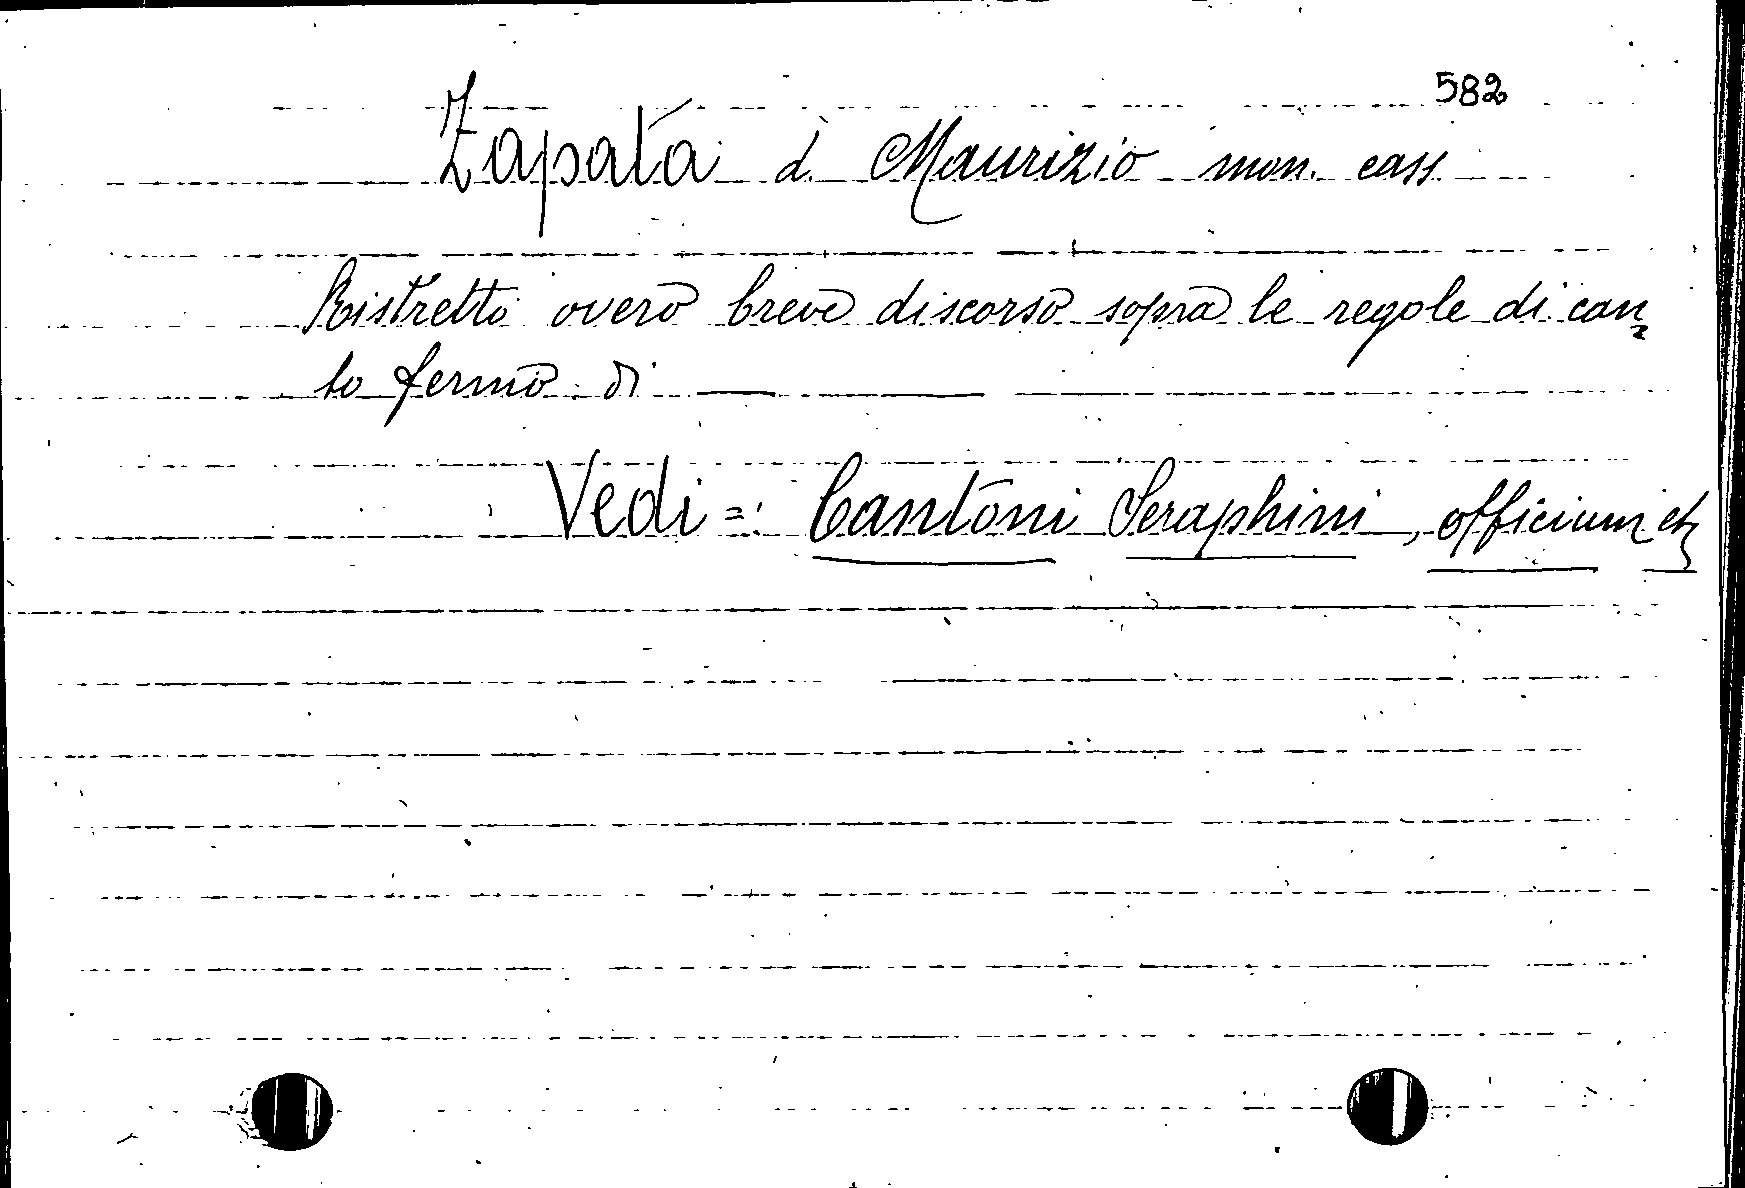 582
Zapata d. Maurizio mon. cass.
Ristretto overo breve discorso sopra le regole di can=
to fermo di ———
Vedi =: Cantoni Seraphini, officium etc